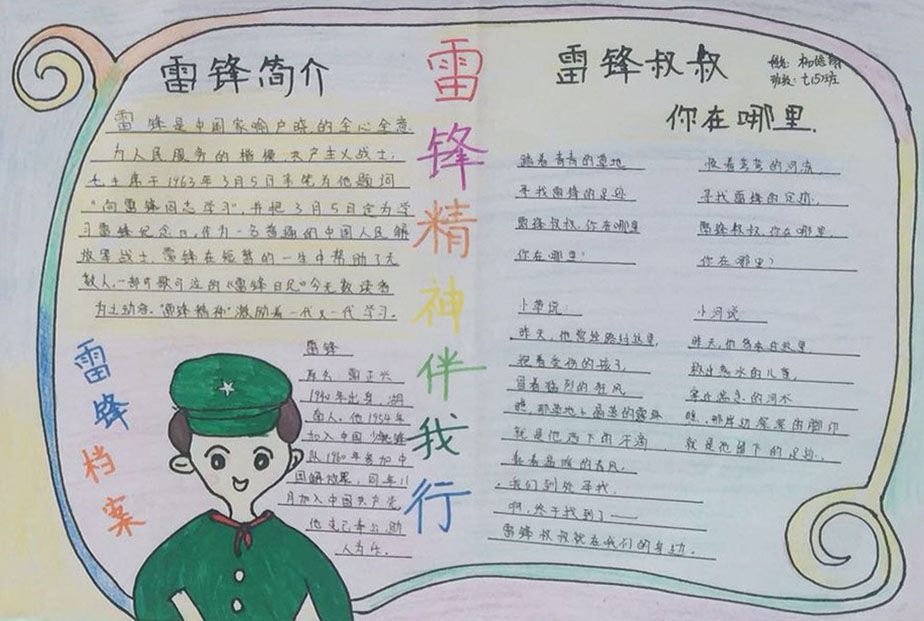 雷锋简介
雷锋是中国家喻户晓的全心全意
为人民服务的楷模,共产主义战士,
毛主席于1963年3月5日亲笔为他题词
"向雷锋同志学习",并把3月5日定为学
习雷锋纪念日,作为一名普通的中国人民解
放军战士,雷锋在短暂的一生中帮助了无
数人,一部可歌可泣的《雷锋日记》令无数读者
为之动容。"雷锋精神"激励着一代又一代学习。
雷锋档案
雷锋
原名 雷正兴
1940年出身,湖
南人,他1954年
加入中国少先
队1960年参加中
国解放军,同年11
月加入中国共产党
他克己奉公,助
人为乐。
雷锋精神伴我行
雷锋叔叔
你在哪里.
姓名:
班级:七(5)班
踏着青青的草地
寻找雷锋的足迹
雷锋叔叔,你在哪里
你在哪里?
小草说:
昨天,他曾经路过这里,
抱着受伤的孩子,
冒着猛烈的狂风
瞧,那草地上晶莹的露珠
就是他洒下的汗滴
乘着温暖的春风,
我们到处寻找,
啊,终于找到了——
雷锋叔叔就在我们的身边.
沿着弯弯的河流,
寻找雷锋的足迹,
雷锋叔叔,你在哪里,
你在哪里?
小河说:
昨天,他曾来到这里
救出落水的儿童,
穿过湍急的河水
瞧,那岸边深深的脚印
就是他留下的足迹.